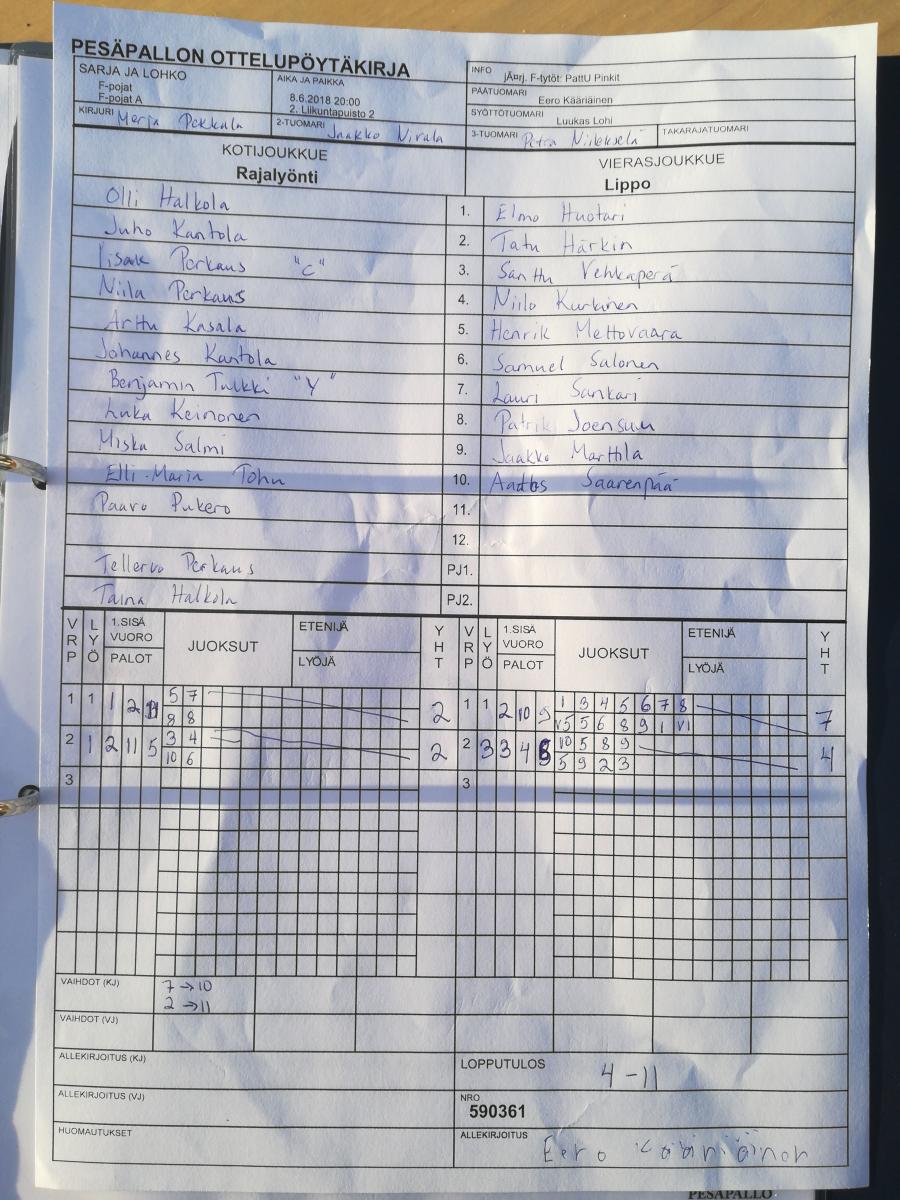 PESÄPALLON OTTELUPÖYTÄKIRJA
SARJA JA LOHKO
F-pojat
F-pojat A
AIKA JA PAIKKA
8.6.2018 20:00
2. Liikuntapuisto 2
INFO jÄ¤rj. F-tytöt: PattU Pinkit
PÄÄTUOMARI Eero Kääriäinen
SYÖTTÖTUOMARI Luukas Lohi
KIRJURI Merja Pekkala
2-TUOMARI Jaakko Nirala
3-TUOMARI Petra
TAKARAJATUOMARI
KOTIJOUKKUE
Rajalyönti
VIERASJOUKKUE
Lippo
Olli Halkola 1. Elmo Huotari
Juho Kantola 2. Tatu Härkin
Iisak Porkaus "C" 3. Santtu Vehkaperä
Niila Porkaus 4. Niilo Kurkinen
Arttu Kasala 5. Henrik Mettovaara
Johannes Kantola 6. Samuel Salonen
Benjamin Tulkki "Y" 7. Lauri Sankari
Luka Keinonen 8. Patrik Joensuu
Miska Salmi 9. Jaakko Marttila
Elli-Maria Tohu 10. Aatos Saarenpää
Paavo Pukero 11.
12.
Tellervo Porkaus PJ1.
Taina Halkola PJ2.
VRP LYÖ 1.SISÄ VUORO PALOT JUOKSUT ETENIJÄ LYÖJÄ YHT VRP LYÖ 1.SISÄ VUORO PALOT JUOKSUT ETENIJÄ LYÖJÄ YHT
1 1 1 2 11 5 7 2 1 1 2 10 9 1 3 4 5 6 7 8 7
8 8 V5 5 6 8 9 1 V1
2 1 2 11 5 3 4 2 2 3 3 4 8 10 5 8 9 4
10 6 5 9 2 3
3 3
VAIHDOT (KJ) 7→10
2→11
VAIHDOT (VJ)
ALLEKIRJOITUS (KJ)
LOPPUTULOS 4-11
ALLEKIRJOITUS (VJ)
NRO
590361
HUOMAUTUKSET
ALLEKIRJOITUS Eero Kääriäinen
PESÄPALLO